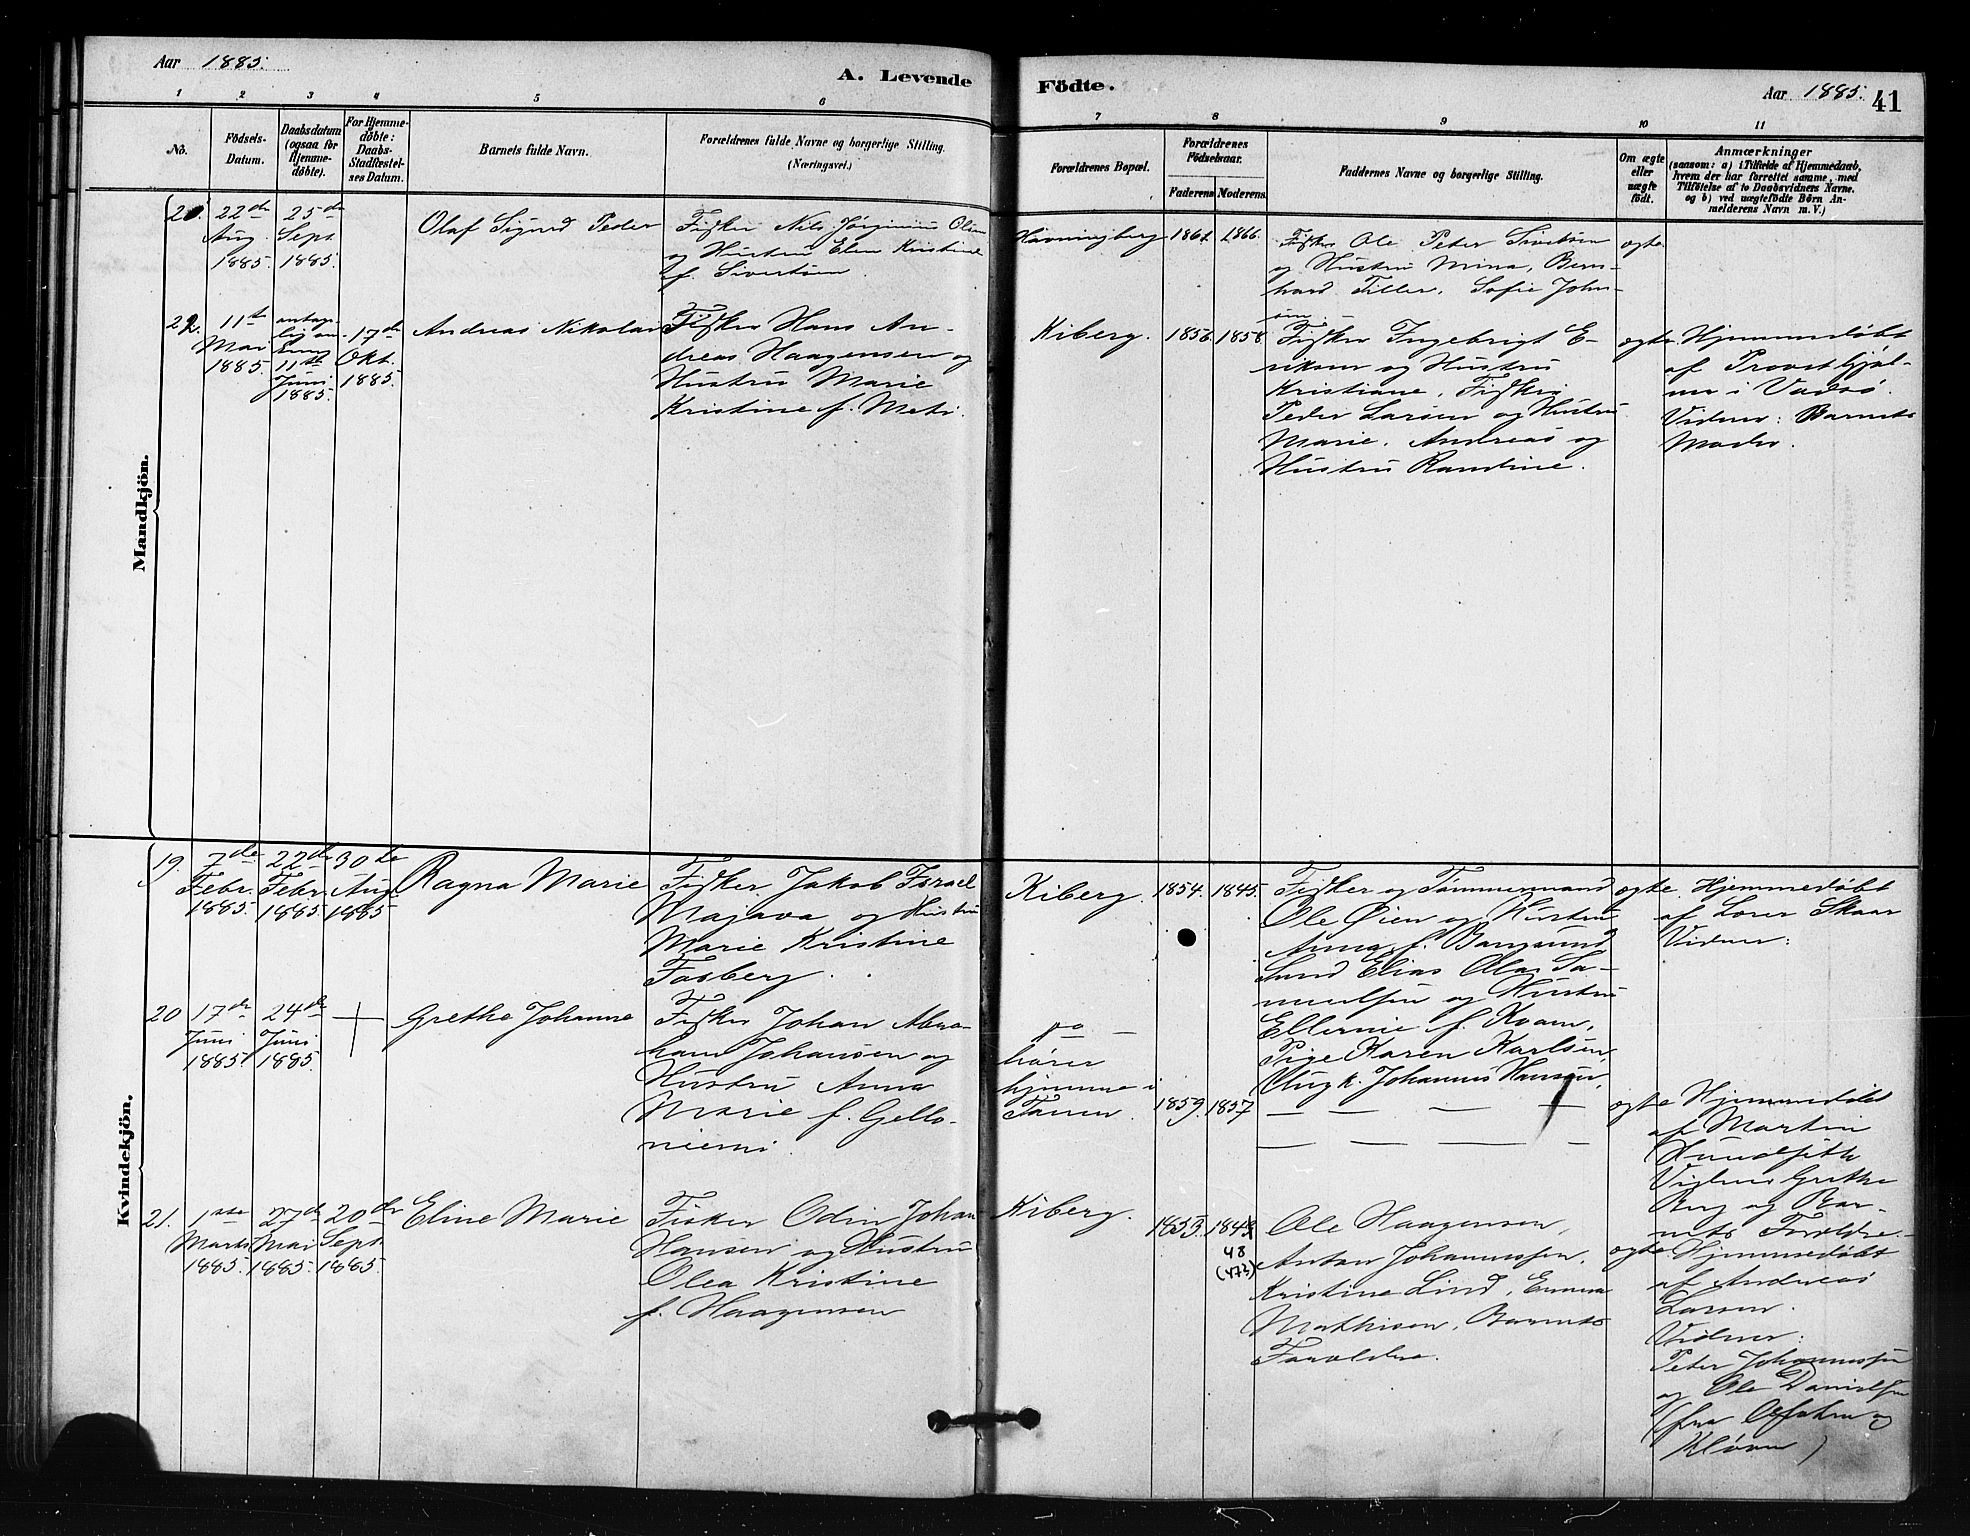 Aar 1885.
A. Levende
Födte.
Aar 1885.
41
1 2 3 4 5 6 7 8 9 10 11
No.
Födsels-
Datum.
Daabsdatum
(ogsaa for
Hjemme-
döbte).
For Hjemme-
döbte:
Daabs-
Stadfæstel-
ses Datum.
Barnets fulde Navn.
Forældrenes fulde Navne og borgerlige Stilling.
(Næringsvei.)
Forældrenes Bopæl.
Forældrenes
Födselsaar.
Faderens Moderens.
Faddernes Navne og borgerlige Stilling.
Om ægte
eller
uægte
födt.
Anmærkninger
(saasom: a) i Tilfælde af Hjemmedaab,
hvem der har forrettet samme, med
Tilföielse af to Daabsvidners Navne.
og b) ved uægtefödte Börn An-
melderens Navn m. V.)
Mandkjön.
21.
22de
Aug
1885.
25de
Sept.
1885.
Olaf Sigurd Peder
Fisker Nils Jørginius Olsen
og Hustru Elen Kristine
f. Sivertsen.
Havningberg
1861.
1866.
Fisker Ole Peter Sivertsen
og Hustru Mina, Bern-
hard Tiller, Sofie John-
sen.
ægte
22.
11te
Mai
1885.
antage-
lig
11te
Juni
1885.
17de
Okt.
1885.
Andreas Nikolai
Fisker Hans An-
dreas Haagensen og
Hustru Marie
Kristine f. Mati.
Kiberg.
1856.
1858.
Fisker Ingebrigt E-
riksen og Hustru
Kristiane, Fisker
Peder Larsen og Hustru
Marie, Andreas og
Hustru Randine.
ægte.
Hjemmedøbt
af Provst Hjel-
me i Vadsø.
Vidner: Barnets
Moder.
Kvindekjön.
19.
7de
Febr.
1885.
22de
Febr.
1885
30de
Aug.
1885
Ragna Marie
Fisker Jakob Israel
Majava og Hustru
Marie Kristine
Fosberg.
Kiberg.
1854.
1845.
Fisker og Tømmermand
Ole Øien og Hustru
Anna f. Bangsund
Elias Olai Sa-
muelsen og Hustru
Ellernie f. Kvam,
Pige Karen Karlsen,
Ungk. Johannes Hansen.
ægte.
Hjemmedøbt
af Lærer Skaar
Vidner:
20
17de
Juni
1885.
24de
Juni
1885.
Grethe Johanne
Fisker Johan Abra-
ham Johansen og
Hustru Anna
Marie f. Gello-
niemi.
do —
hører
hjemme i
Tanen.
1859.
1857
— — — —
— — — —
ægte
Hjemmedøbt
af Martin
Vidner Grethe
Berg og Bar-
nets Forældre.
21.
1ste
Marts
1885.
27de
Mai
1885.
20de
Sept.
1885.
Eline Marie
Fisker Odin Johan
Hansen og Hustru
Olea Kristine
f. Haagensen
Kiberg.
1853.
1849
48
(473)
Ole Haagensen,
Anton Johannessen,
Kristine Lind, Emma
Mathisen, Barnets
Forældre.
ægte.
Hjemmedøbt
af Andreas
Larsen.
Vidner:
Peter Johannessen
og Ole Danielsen
(fra og
Kløven)